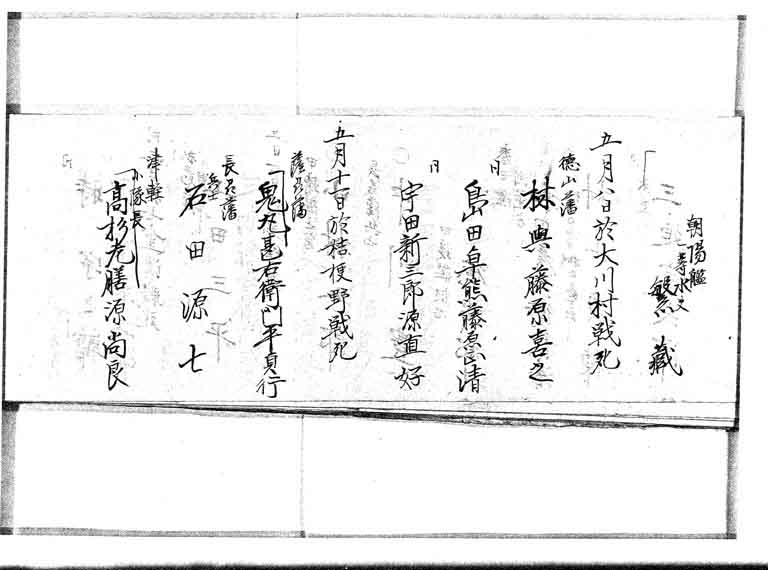 朝陽艦
一等水夫
繁蔵
五月八日於大川村戦死
徳山藩
林與藤原喜之
同
島田卓熊藤原清
同
宇田新三郎源直好
五月十一日於桔梗野戦死
薩藩
鬼丸甚右衛門平貞行
長名藩
兵士
石田源七
津軽
小隊長
高杉左膳源尚良